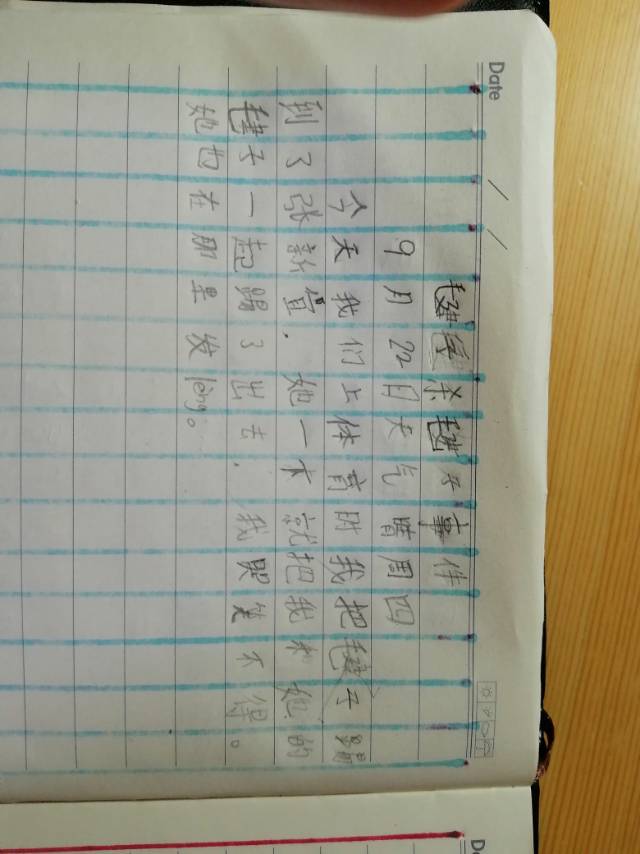 Date / /
毽子杀毽子事件
9月22日天气晴周四
今天我们上体育时我把毽子踢
到了张新宜，她一木就把我和她的
毽子一起踢了出去，我哭笑不得。
她也在那里发lèng。